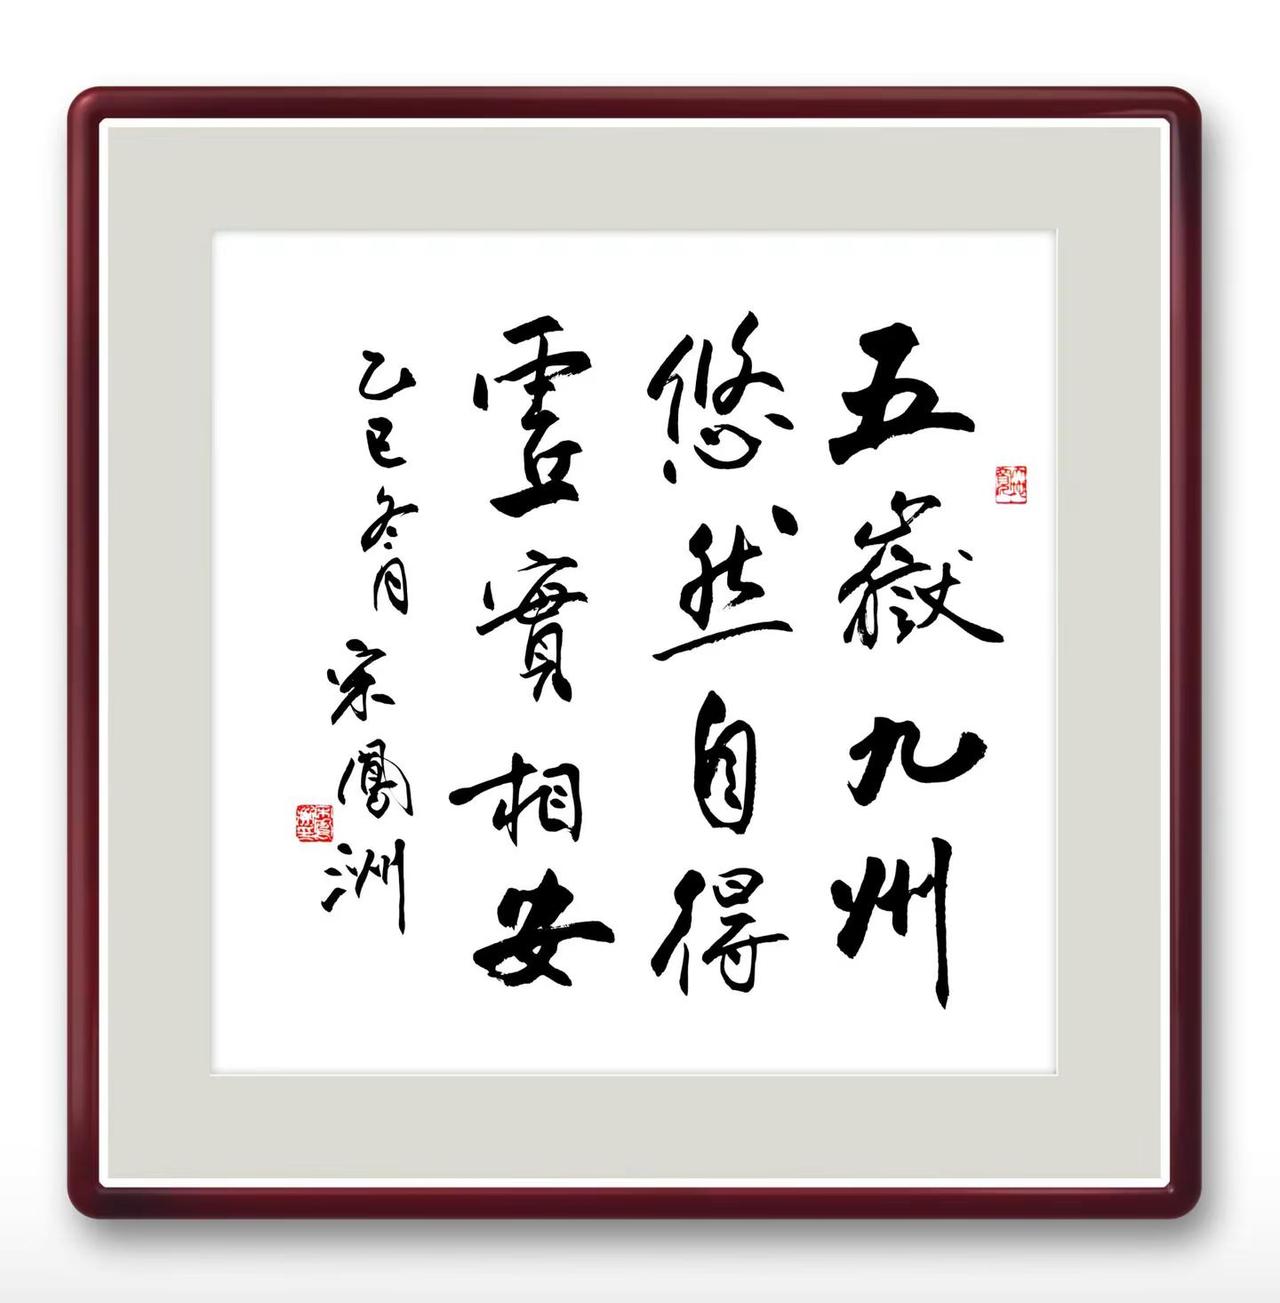 五嶽九州
悠然自得
虛實相安
乙巳冬月
宋鳳洲